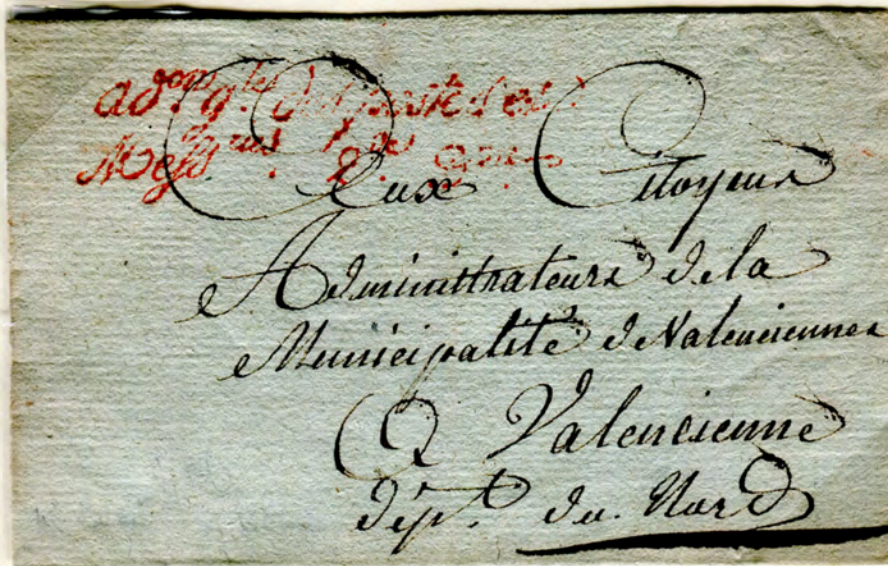 adᵒⁿ gˡᵉ des postes et
Messʳⁱᵉˢ
Aux Citoyens
Administrateurs de la
Municipalité de Valenciennes
A Valencienne
dépᵗ. du Nord